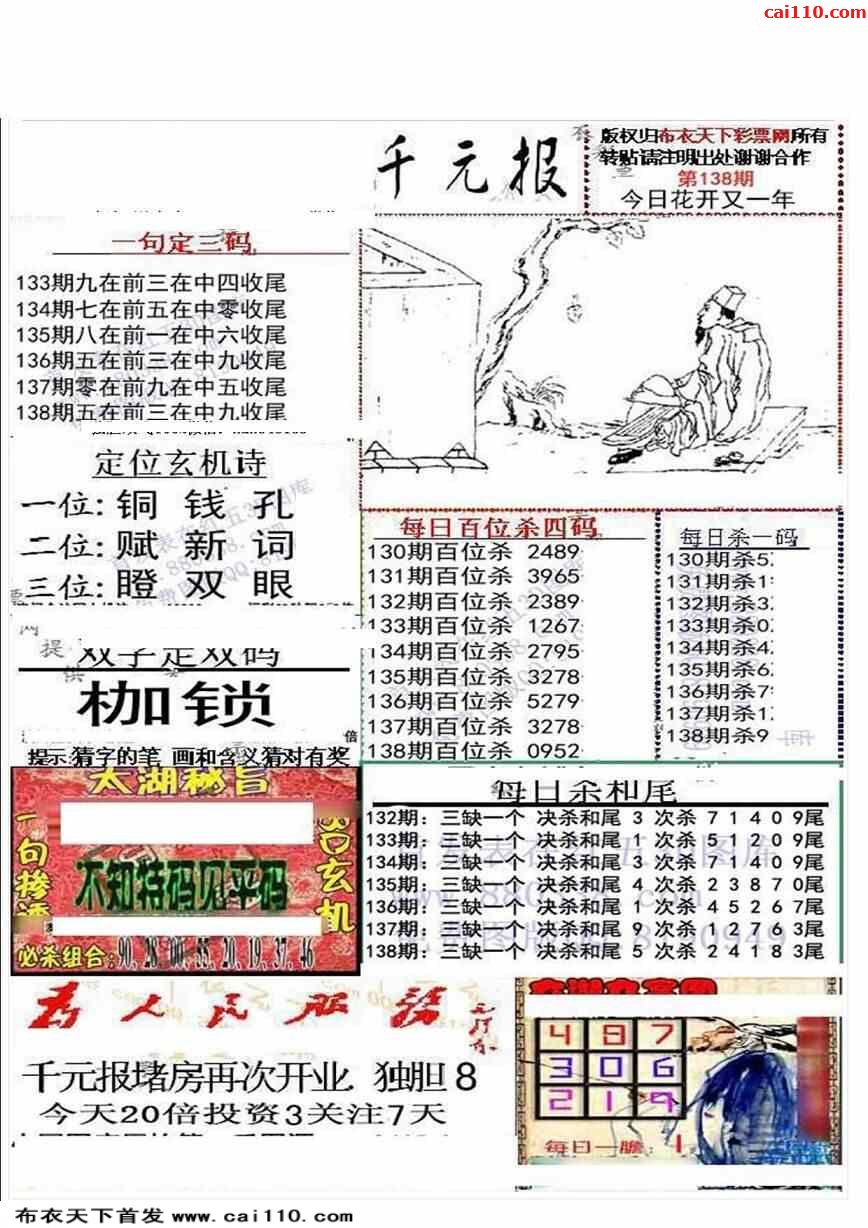 cai110.com
千元报
版权归布衣天下彩票网所有
转贴请注明出处谢谢合作
第138期
今日花开又一年
一句定三码
133期九在前三在中四收尾
134期七在前五在中零收尾
135期八在前一在中六收尾
136期五在前三在中九收尾
137期零在前九在中五收尾
138期五在前三在中九收尾
定位玄机诗
一位: 铜 钱 孔
二位: 赋 新 词
三位: 瞪 双 眼
每日百位杀四码
130期百位杀 2489
131期百位杀 3965
132期百位杀 2389
133期百位杀 1267
134期百位杀 2795
135期百位杀 3278
136期百位杀 5279
137期百位杀 3278
138期百位杀 0952
每日杀一码
130期杀5
131期杀1
132期杀3
133期杀0
134期杀4
135期杀6
136期杀7
137期杀1
138期杀9
双字定双码
枷锁
提示:猜字的笔 画和含义猜对有奖
太湖秘旨
不知特码见平码
必杀组合:90,28,00,55,20,19,37,46
每日杀和尾
132期: 三缺一个 决杀和尾 3 次杀 7 1 4 0 9尾
133期: 三缺一个 决杀和尾 1 次杀 5 1 2 0 9尾
134期: 三缺一个 决杀和尾 3 次杀 7 1 4 0 9尾
135期: 三缺一个 决杀和尾 4 次杀 2 3 8 7 0尾
136期: 三缺一个 决杀和尾 1 次杀 4 5 2 6 7尾
137期: 三缺一个 决杀和尾 9 次杀 1 2 7 6 3尾
138期: 三缺一个 决杀和尾 5 次杀 2 4 1 8 3尾
为人民服务
毛泽东
千元报堵房再次开业. 独胆 8
今天20倍投资3关注7天
4 8 7
3 0 6
2 1 9
每日一胆: 1
布衣天下首发 www.cai110.com